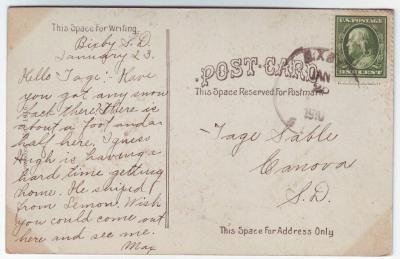 This Space For Writing.
Bixby S.D.
January 23.
Hello Tage: Have
you got any snow
back there? there is
about a foot and a
half here. I guess
Hugh is having a
hard time getting
home. He shiped
from Lemon. Wish
you could come out
here and see me.
Max
POST CARD
This Space Reserved For Postmark
U.S. POSTAGE
1910
Tage Sable
Canova
S.D.
This Space For Address Only